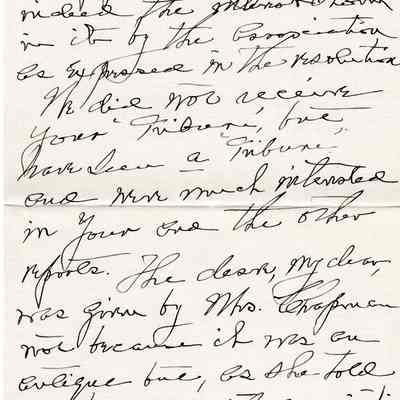 indeed the interest shown
in it by the Association
as expressed in the resolution
We did not receive
your "Tribune", but
have seen a "Tribune",
and were much interested
in your and the other
reports. The desk, my dear,
was given by Mrs. Chapman
not because it was an
antique but, as she told